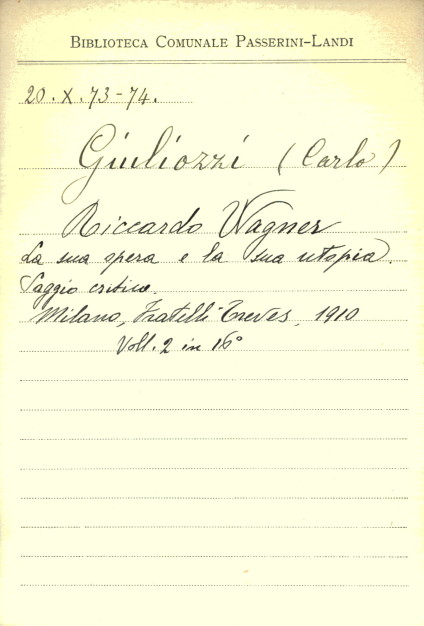 BIBLIOTECA COMUNALE PASSERINI-LANDI
20. X. 73-74.
Giuliozzi (Carlo)
Riccardo Wagner
La sua opera e la sua utopia.
Saggio critico.
Milano, Fratelli Treves, 1910
Voll. 2 in 16°